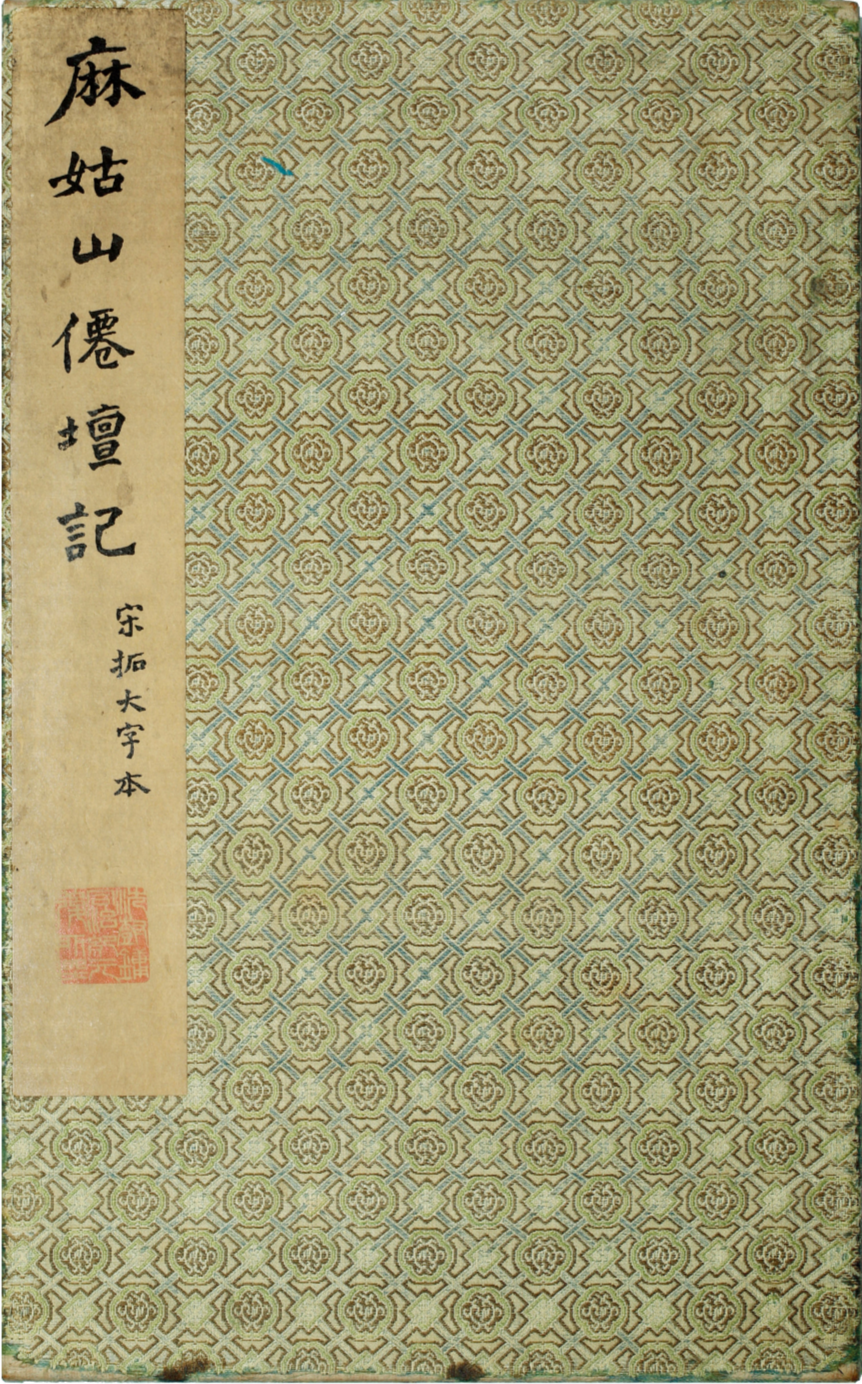 麻姑山僊壇記
宋拓大字本